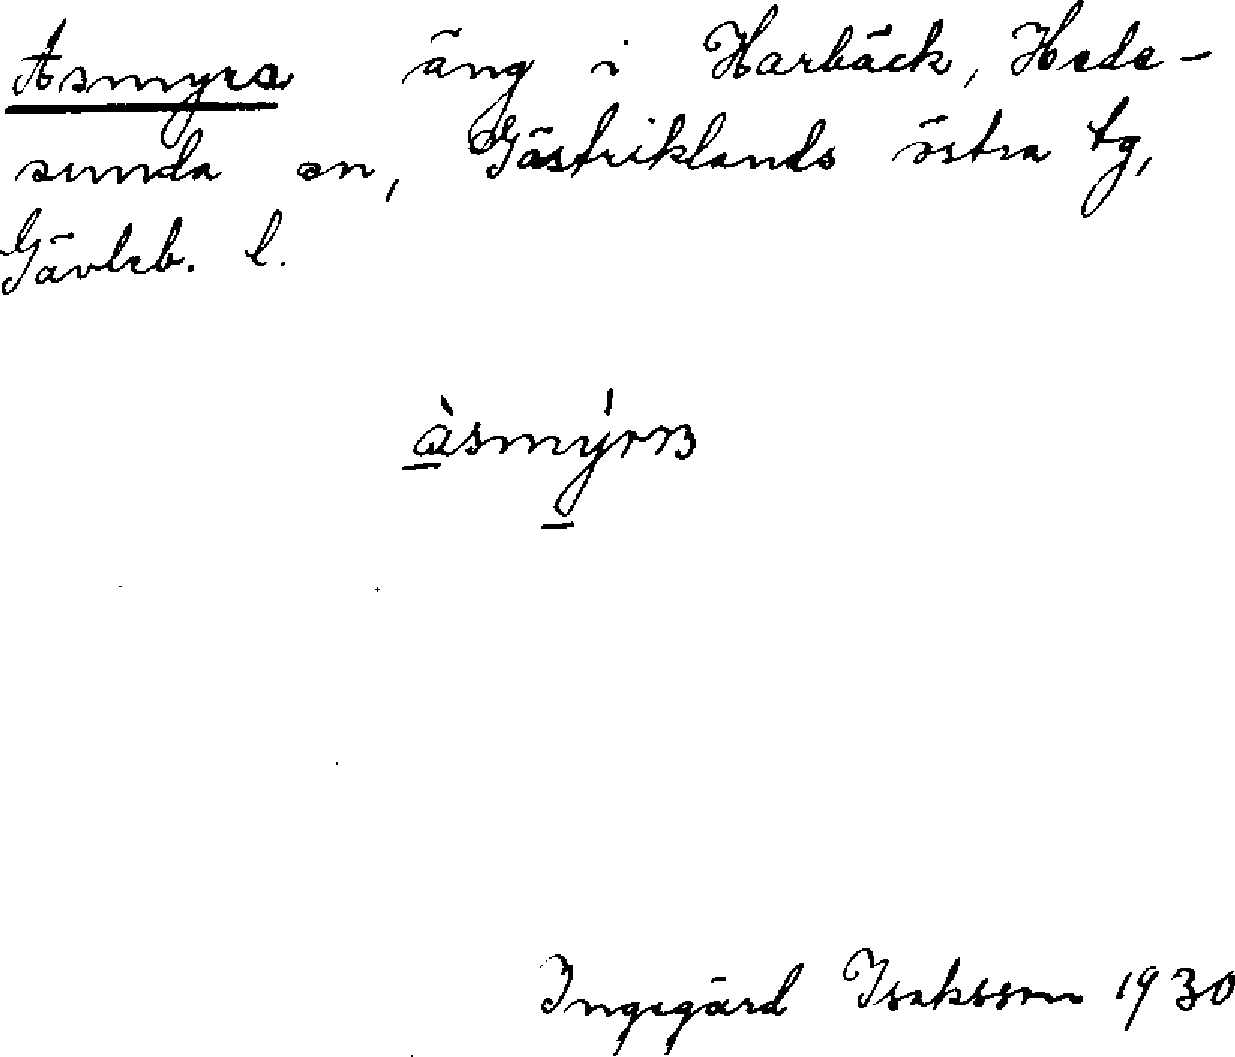 Asmyra äng i Harbäck, Hede-
sunda sn, Gästriklands östra tg,
Gävleb. l.
àsmýrɪʙ
Ingegärd Isaksson 1930